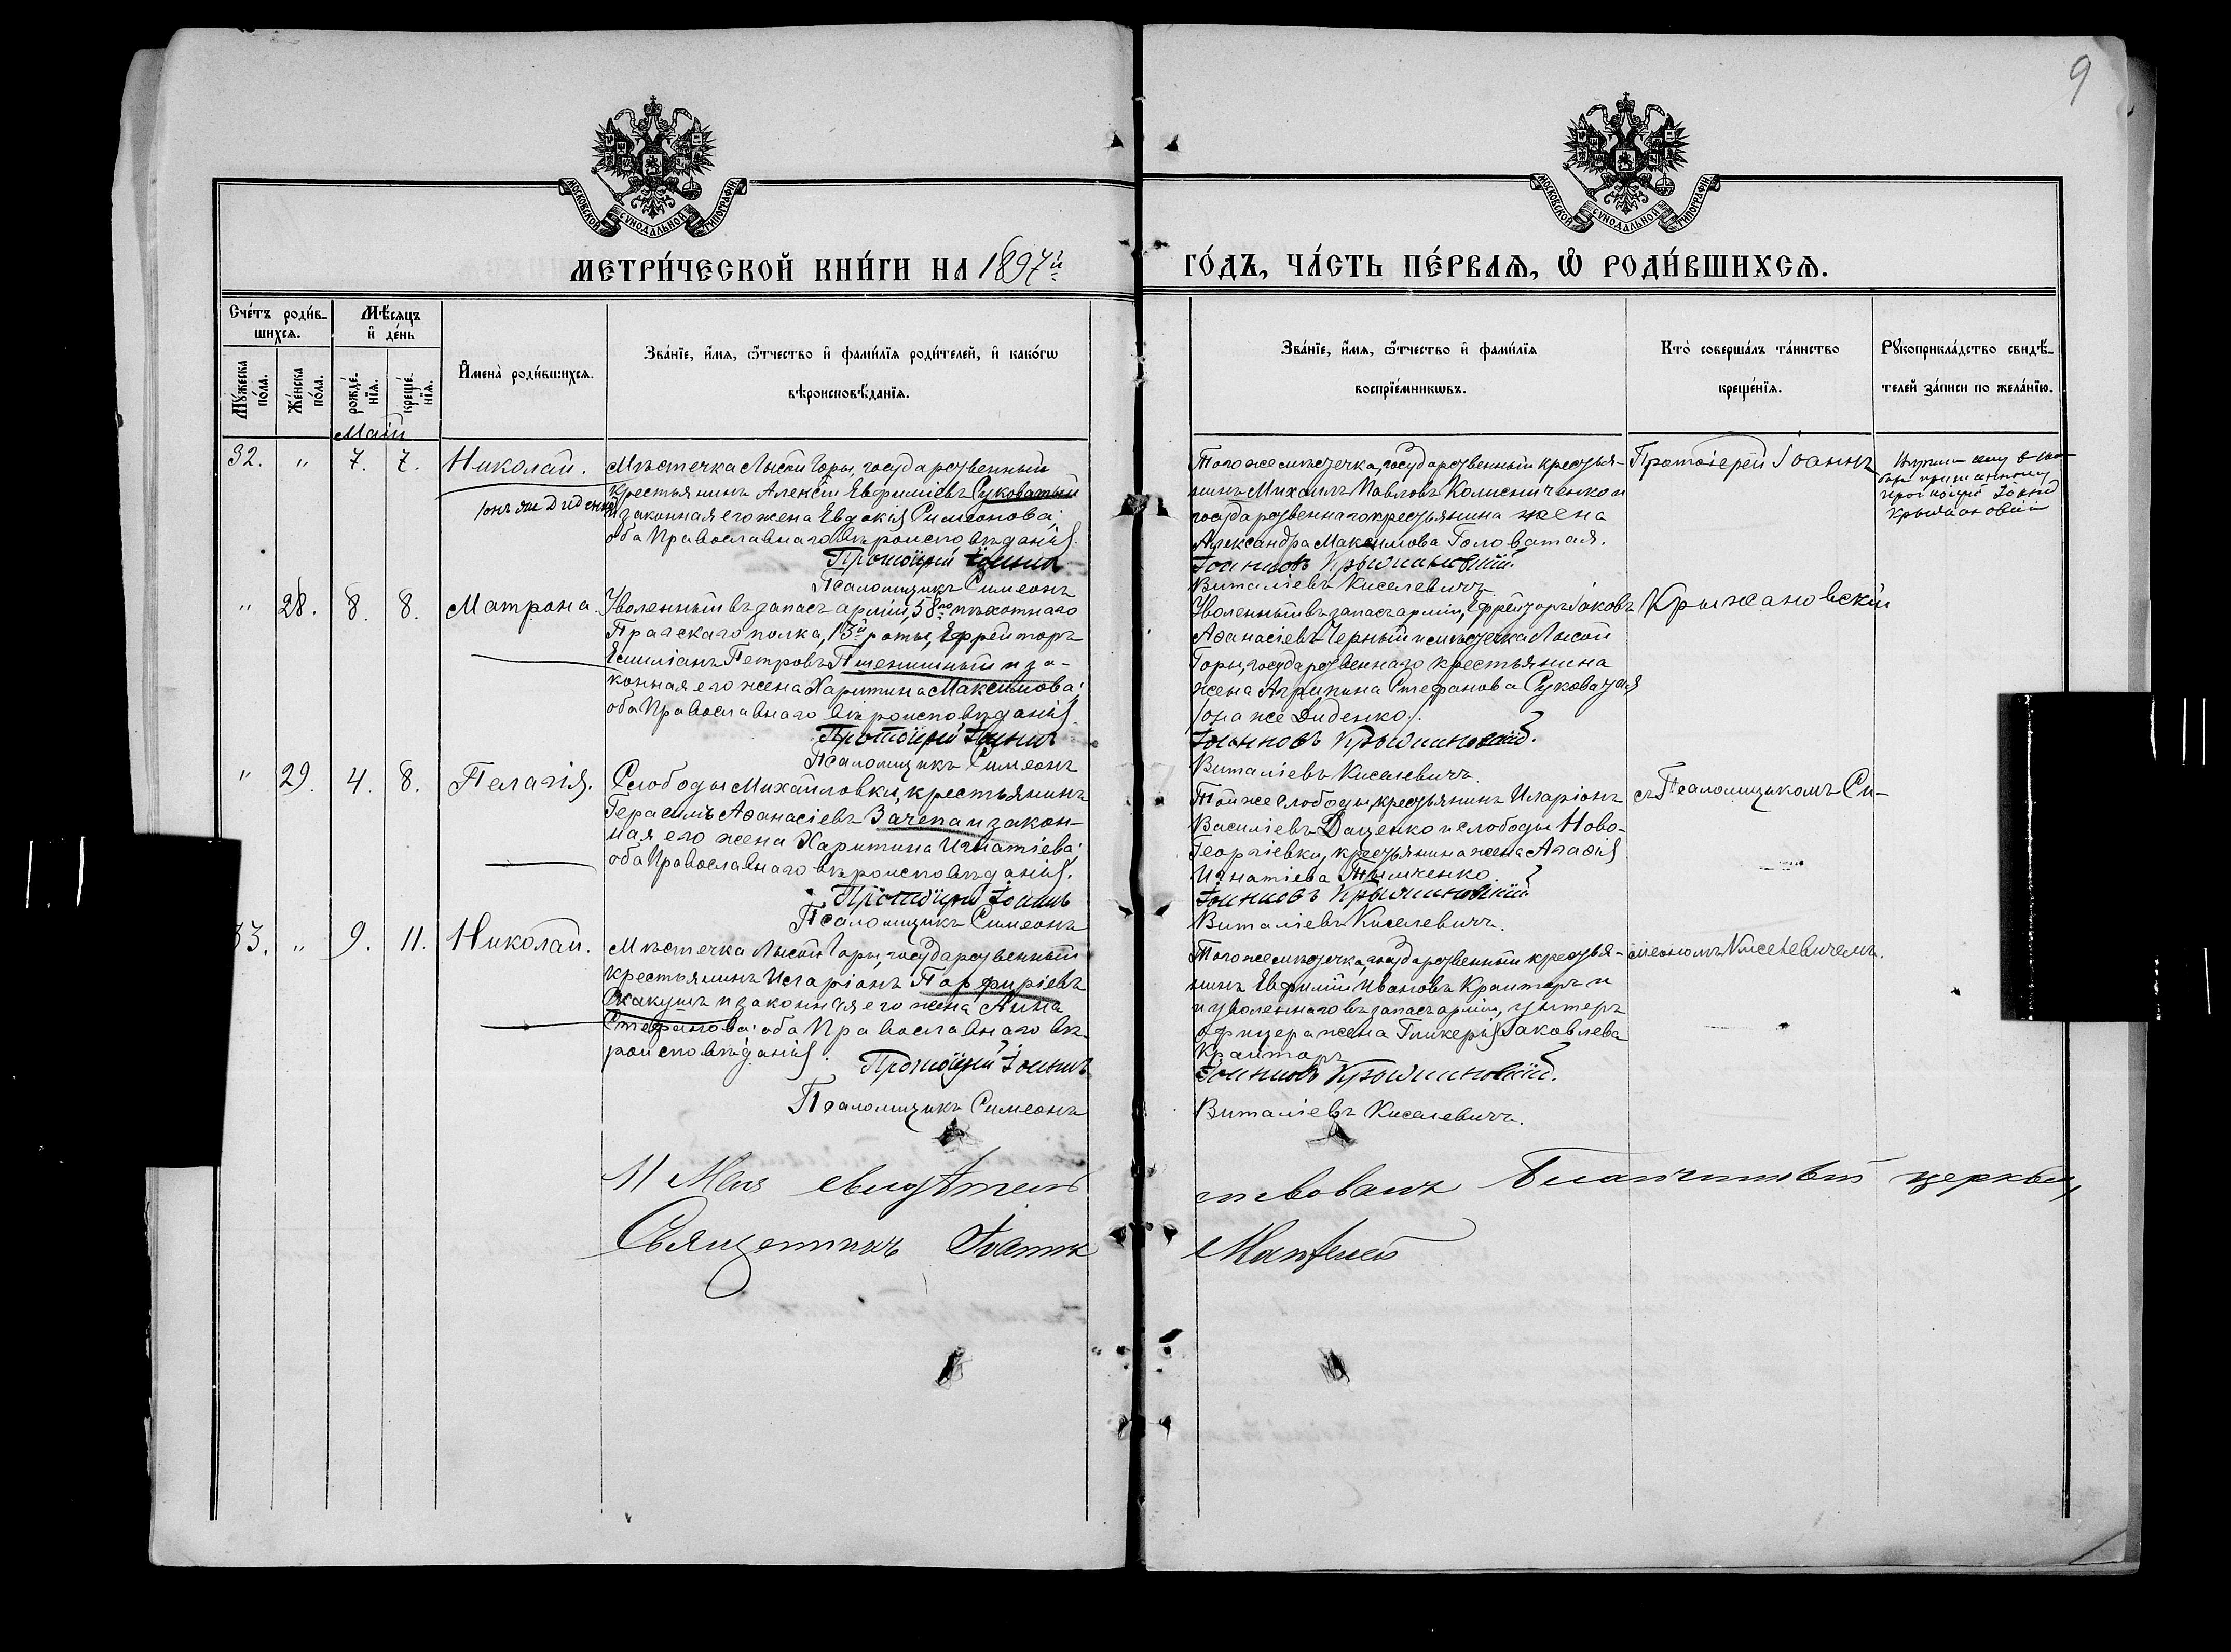 9
МОСКОВСКОЙ СѴНОДАЛЬНОЙ ТИПОГРАФІИ
МОСКОВСКОЙ СѴНОДАЛЬНОЙ ТИПОГРАФІИ
МЕТРИ́ЧЕСКОЙ КНИ́ГИ НА 1897й
ГО́ДЪ, ЧА́СТЬ ПЕ́РВАЯ, Ѡ РОДИ́ВШИХСЯ.
Сче́тъ роди́в-
шихся.
Му́жеска
по́ла.
Же́нска
по́ла.
Мѣ́сяцъ
и де́нь
рожде́-
нія.
креще́-
нія.
Имена̀ роди́вшихся.
Зва́нїе, и́мя, ѻ́тчество и фами́лїя роди́телей, и како́гѡ
вѣроисповѣ́данїя.
Зва́нїе, и́мя, ѻ́тчество и фами́лїя
воспрїе́мникѡвъ.
Кто̀ соверша́лъ та́инство
креще́нїя.
Рукоприкла́дство свидѣ́-
телей за́писи по жела́нїю.
Май
32. " 7. 7. Николай.
Мѣстечка Лысой Горы, государственный
крестьянинъ Алексѣй Евфиміевъ Суковатый
/онъ же Диденко/
и законная его жена Евдокія Симеонова;
оба Православнаго вѣроисповѣданія.
Протоіерей Іоаннъ
Псаломщикъ Симеонъ
Того же мѣстечка, государственный крестья-
нинъ Михаилъ Павловъ Колисниченко и
государственнаго крестьянина жена
Александра Максимова Головатая.
Іоанновъ Крыжановскій.
Виталіевъ Киселевичъ.
Протоіерей Іоаннъ
Іоаннъ
Крыжановскій
" 28. 8. 8. Матрона.
Уволенный въ запасъ арміи, 58го пѣхотнаго
Прагскаго полка, 13й роты, Ефрейторъ
Емиліанъ Петровъ Пшенишный и за-
конная его жена Харитина Максимова;
оба Православнаго вѣроисповѣданія.
Протоіерей Іоаннъ
Псаломщикъ Симеонъ
Уволенный въ запасъ арміи, Ефрейторъ Іаковъ
Аѳанасіевъ Черный и мѣстечка Лысой
Горы, государственнаго крестьянина
жена Агрипина Стефанова Суковатая
/она же Диденко/.
Іоанновъ Крыжановскій.
Виталіевъ Киселевичъ.
Крыжановскій
" 29. 4. 8. Пелагія.
Слободы Михайловки, крестьянинъ
Герасимъ Аѳанасіевъ Зачепа и закон-
ная его жена Харитина Игнатіева;
оба Православнаго вѣроисповѣданія.
Протоіерей Іоаннъ
Псаломщикъ Симеонъ
Той же слободы, крестьянинъ Иларіонъ
Василіевъ Даценко и слободы Ново-
Георгіевки, крестьянина жена Агаѳія
Игнатіева Тымченко.
Іоанновъ Крыжановскій.
Виталіевъ Киселевичъ.
съ Псаломщикомъ Си-
33. " 9. 11. Николай.
Мѣстечка Лысой Горы, государственный
крестьянинъ Иларіонъ Парфиріевъ
Скакунъ и законная его жена Анна
Стефанова; оба Православнаго вѣ-
роисповѣданія.
Протоіерей Іоаннъ
Псаломщикъ Симеонъ
Того же мѣстечка, государственный крестья-
нинъ Евфимій Ивановъ Крамторъ и
и уволеннаго въ запасъ арміи, унтеръ
офицера жена Гликерія Іаковлева
Крамторъ
Іоанновъ Крыжановскій.
Виталіевъ Киселевичъ.
меономъ Киселевичемъ.
11 Мая свидѣтель-
ствовалъ Благочинный церквей,
Священникъ Іоаннъ